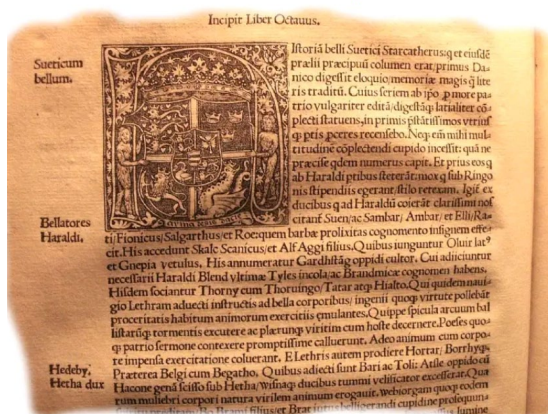 Incipit Liber Octauus.
Sueticum
bellum.
Istoriã belli Suetici Starcatherus: q et eiusdẽ
prælii præcipuũ columen erat, primus Da-
nico digessit eloquio, memoriæ magis q̃ lite
ris traditũ. Cuius seriem ab ipo p more pa-
trio vulgariter editã, digestãq; latialiter cõ-
plecti statuens, in primis p̃stãtissimos vtrius
q; ptis pceres recensebo. Neq; em mihi mul-
titudinẽ cõplectendi cupido incessit: quã ne
præcise qdem numerus capit. Et prius eos q
ab Haraldi ptibus steterãt: mox q sub Ringo
nis stipendiis egerant, stilo retexam. Igit̃ ex
ducibus q ad Haraldũ coierãt clarissimi nos
cũtur Suen, ac Sambar, Ambar, et Elli, Ra-
Bellatores
Haraldi.
ti Fionicus, Salgarthus et Roe: quem barbæ prolixitas cognomento insignem effe-
cit. His accedunt Skalc Scanicus, et Alf Aggi filius. Quibus iunguntur Oluir lat9
et Gnepia vetulus. His annumeratur Gardhstãg oppidi cultor. Cui adiiciuntur
necessarii Haraldi Blend vltimæ Tyles incola, ac Brandmicæ cognomen habens.
Hisdem sociantur Thorny cum Thoruingo, Tatar atq; Hialto. Qui quidem naui-
gio Lethram aduecti instructis ad bella corporibus, ingenii quoq; virtute pollebãt
proceritatis habitum animorum exercitiis emulantes. Quippe spicula arcuum bal
listarũq; tormentis excutere ac plærunq; viritim cum hoste decernere. Poeses quo-
q; patrio sermone contexere promptissime calluerunt. Adeo animum cum corpo-
re impensa exercitatione coluerant. E Lethris autem prodiere Hortar, Borrhyq;
Hedeby.
Hetha dux
Præterea Belgi cum Begatho. Quibus adiecti sunt Bari ac Toli: Atsle oppido eñ
Hacone genã scisso sub Hetha, Wisnaq; ducibus tummi velificator excesserat. Qua
rum muliebri corpori natura virilem animum erogauit. Webiorgam quoq; eodem